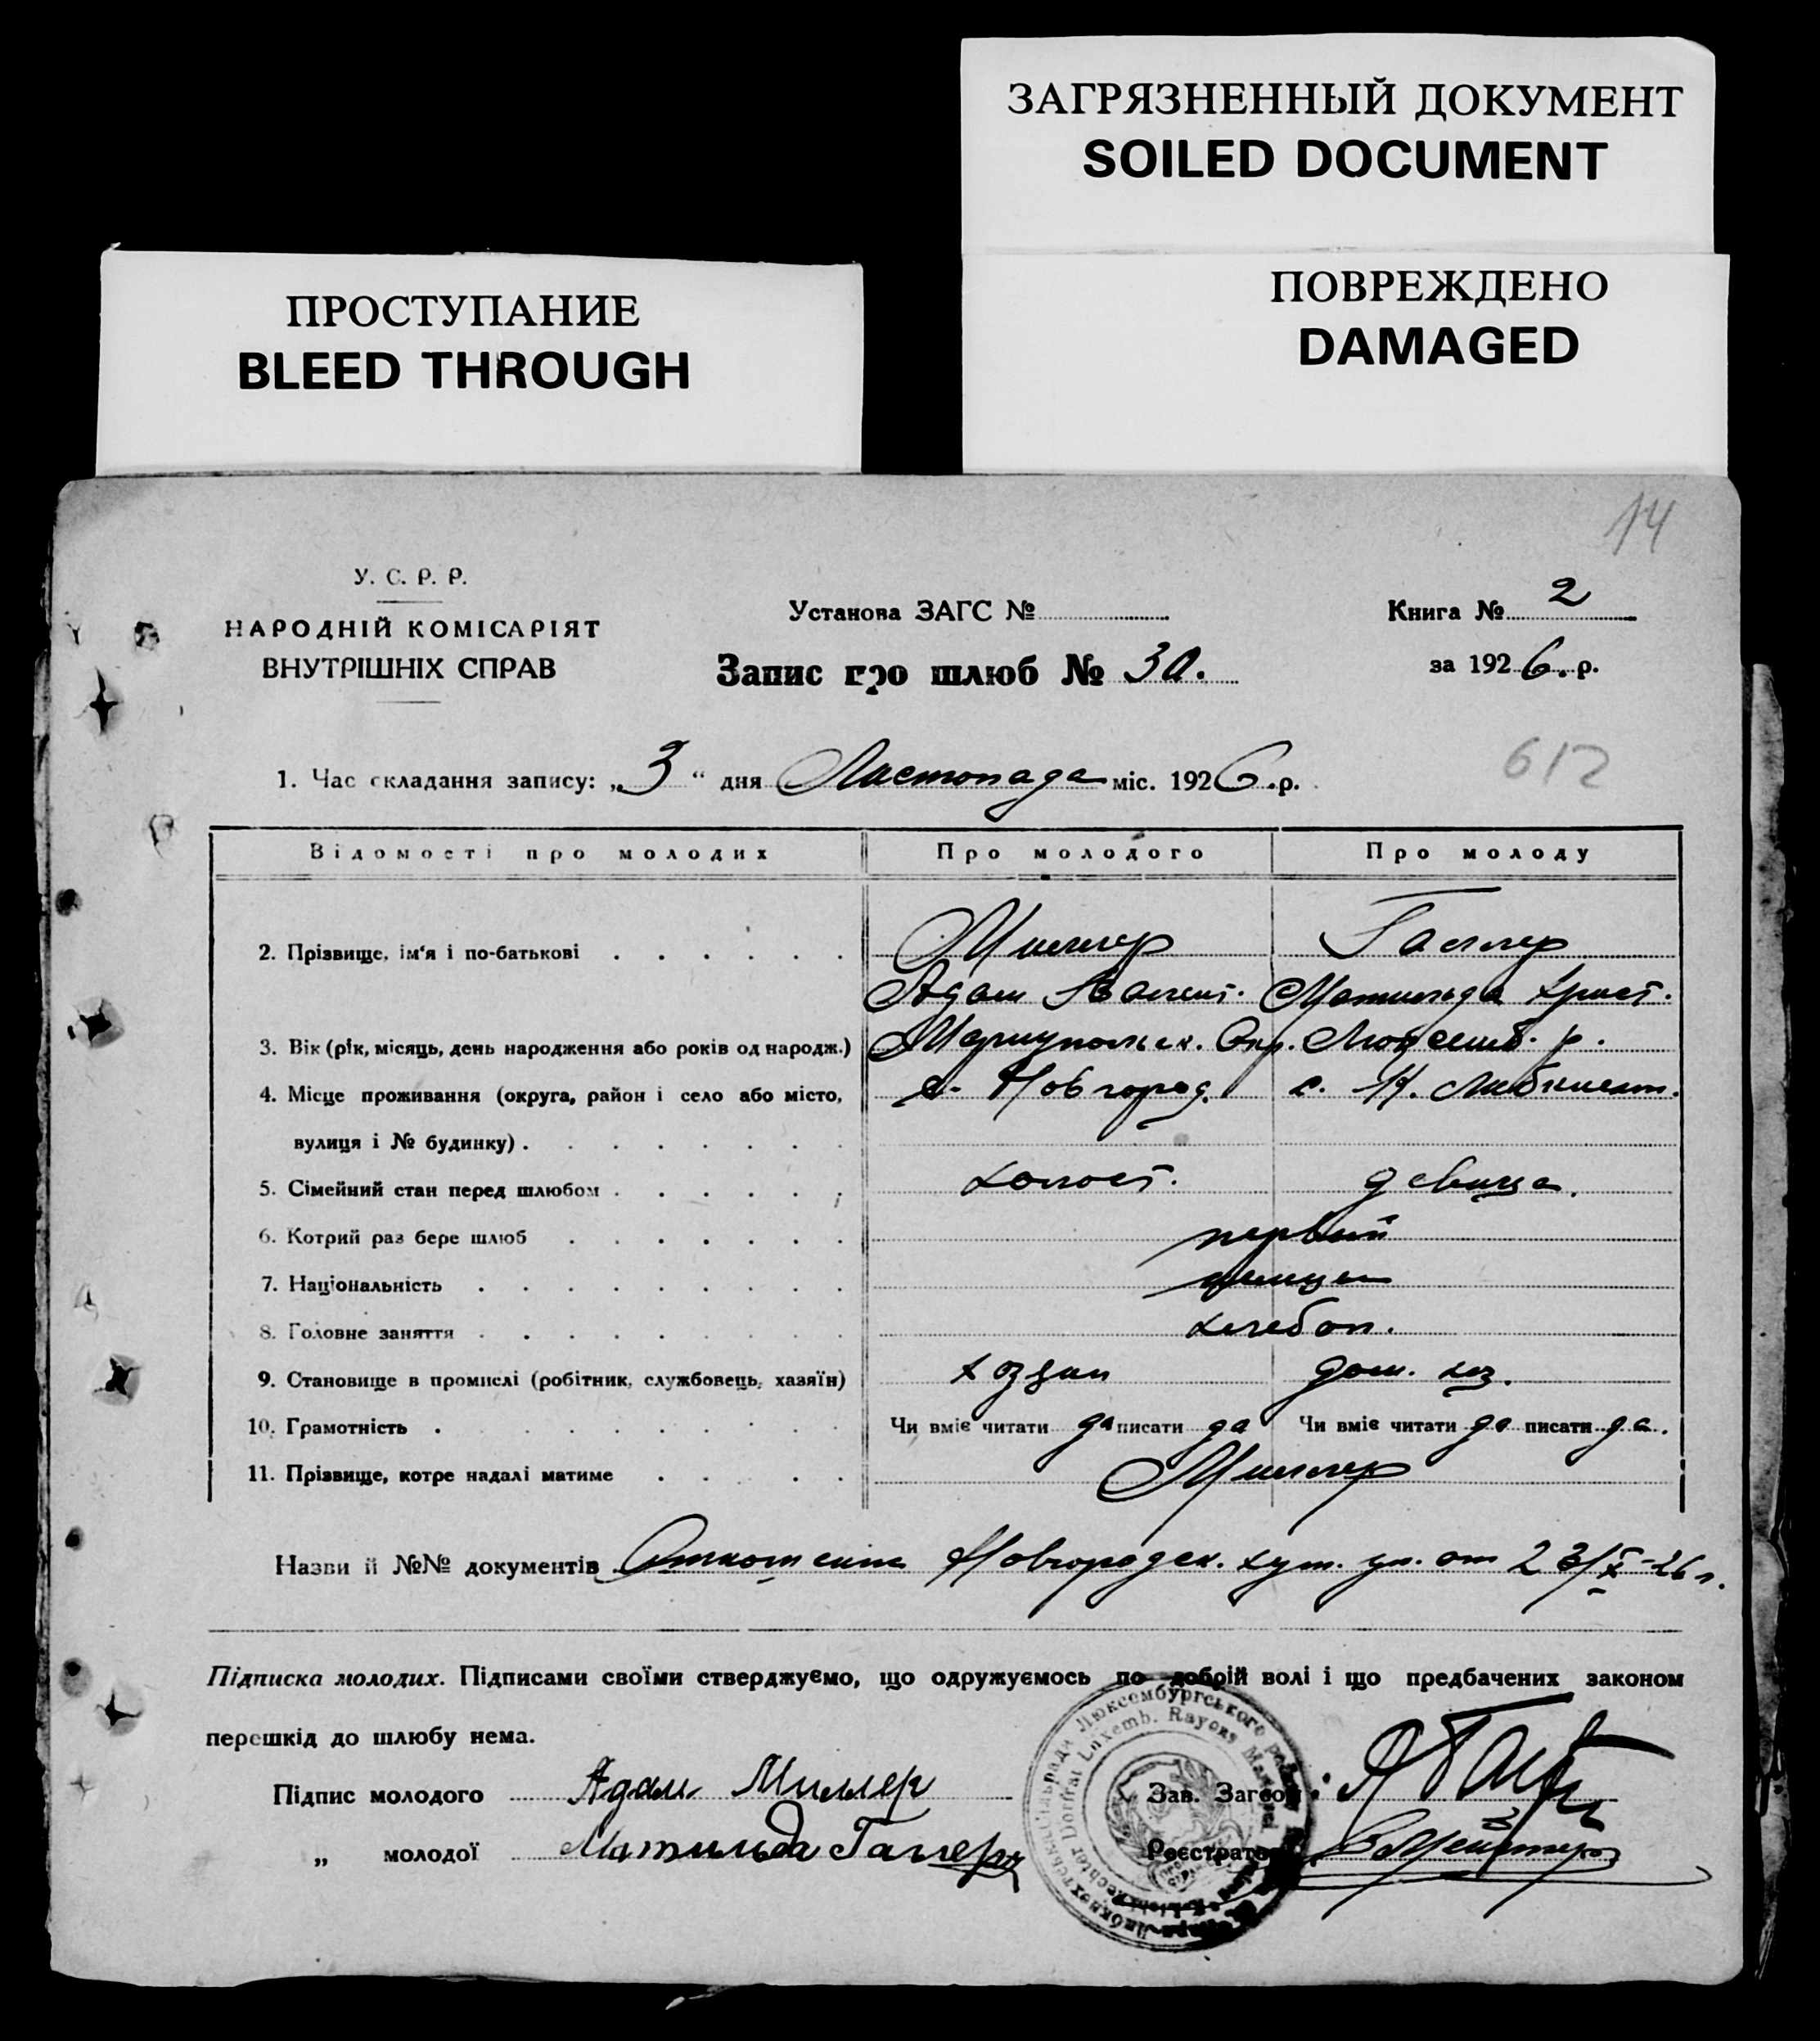 ЗАГРЯЗНЕННЫЙ ДОКУМЕНТ
SOILED DOCUMENT
ПРОСТУПАНИЕ
BLEED THROUGH
ПОВРЕЖДЕНО
DAMAGED
14
У. С. Р. Р.
НАРОДНІЙ КОМІСАРІЯТ
ВНУТРІШНІХ СПРАВ
Установа ЗАГС №
Запис про шлюб № 30.
Книга № 2
за 1926. р.
1. Час складання запису: „3“ дня Листопада міс. 1926.р.
612
Відомості про молодих Про молодого Про молоду
2. Прізвище, ім'я і по-батькові Миллер Галлер
Адам Валент. Матильда Христ.
3. Вік (рік, місяць, день народження або років од народж.) Мариупольск. Окр. Люксемб. р.
4. Місце проживання (округа, район і село або місто, с. Новгород. с. К. Либкнехт.
вулиця і № будинку)
5. Сімейний стан перед шлюбом холост. девица.
6. Котрий раз бере шлюб первый
7. Національність немцы
8. Головне заняття хлебоп.
9. Становище в промислі (робітник, службовець, хазяїн) хозяин дом. хоз.
10. Грамотність Чи вміє читати да писати да Чи вміє читати да писати да.
11. Прізвище, котре надалі матиме Миллер
Назви й №№ документів Отношение Новгородск. хут. уп. от 23/X-26 г.
Підписка молодих. Підписами своїми стверджуємо, що одружуємось по добрій волі і що предбачених законом
перешкід до шлюбу нема.
Підпис молодого Адам Миллер
Зав. Загсом
„ молодої Матильда Галлер
Реєстратор
Люксембургського
Luxemb. Rayons